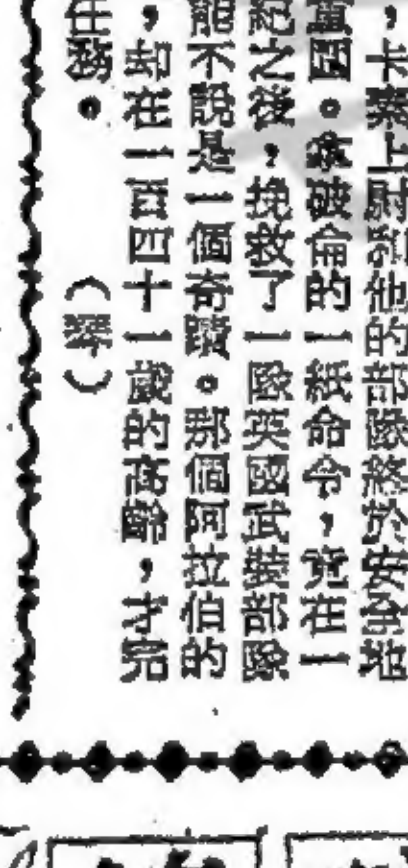 ，卡桑上尉和他的部隊終於安全地
國。拿破倫的一紙命令，竟在一
紀之後，挽救了一隊英國武裝部隊
能不說是一個奇蹟。那個阿拉伯的
，却在一百四十一歲的高齡，才完
任務。（琴）